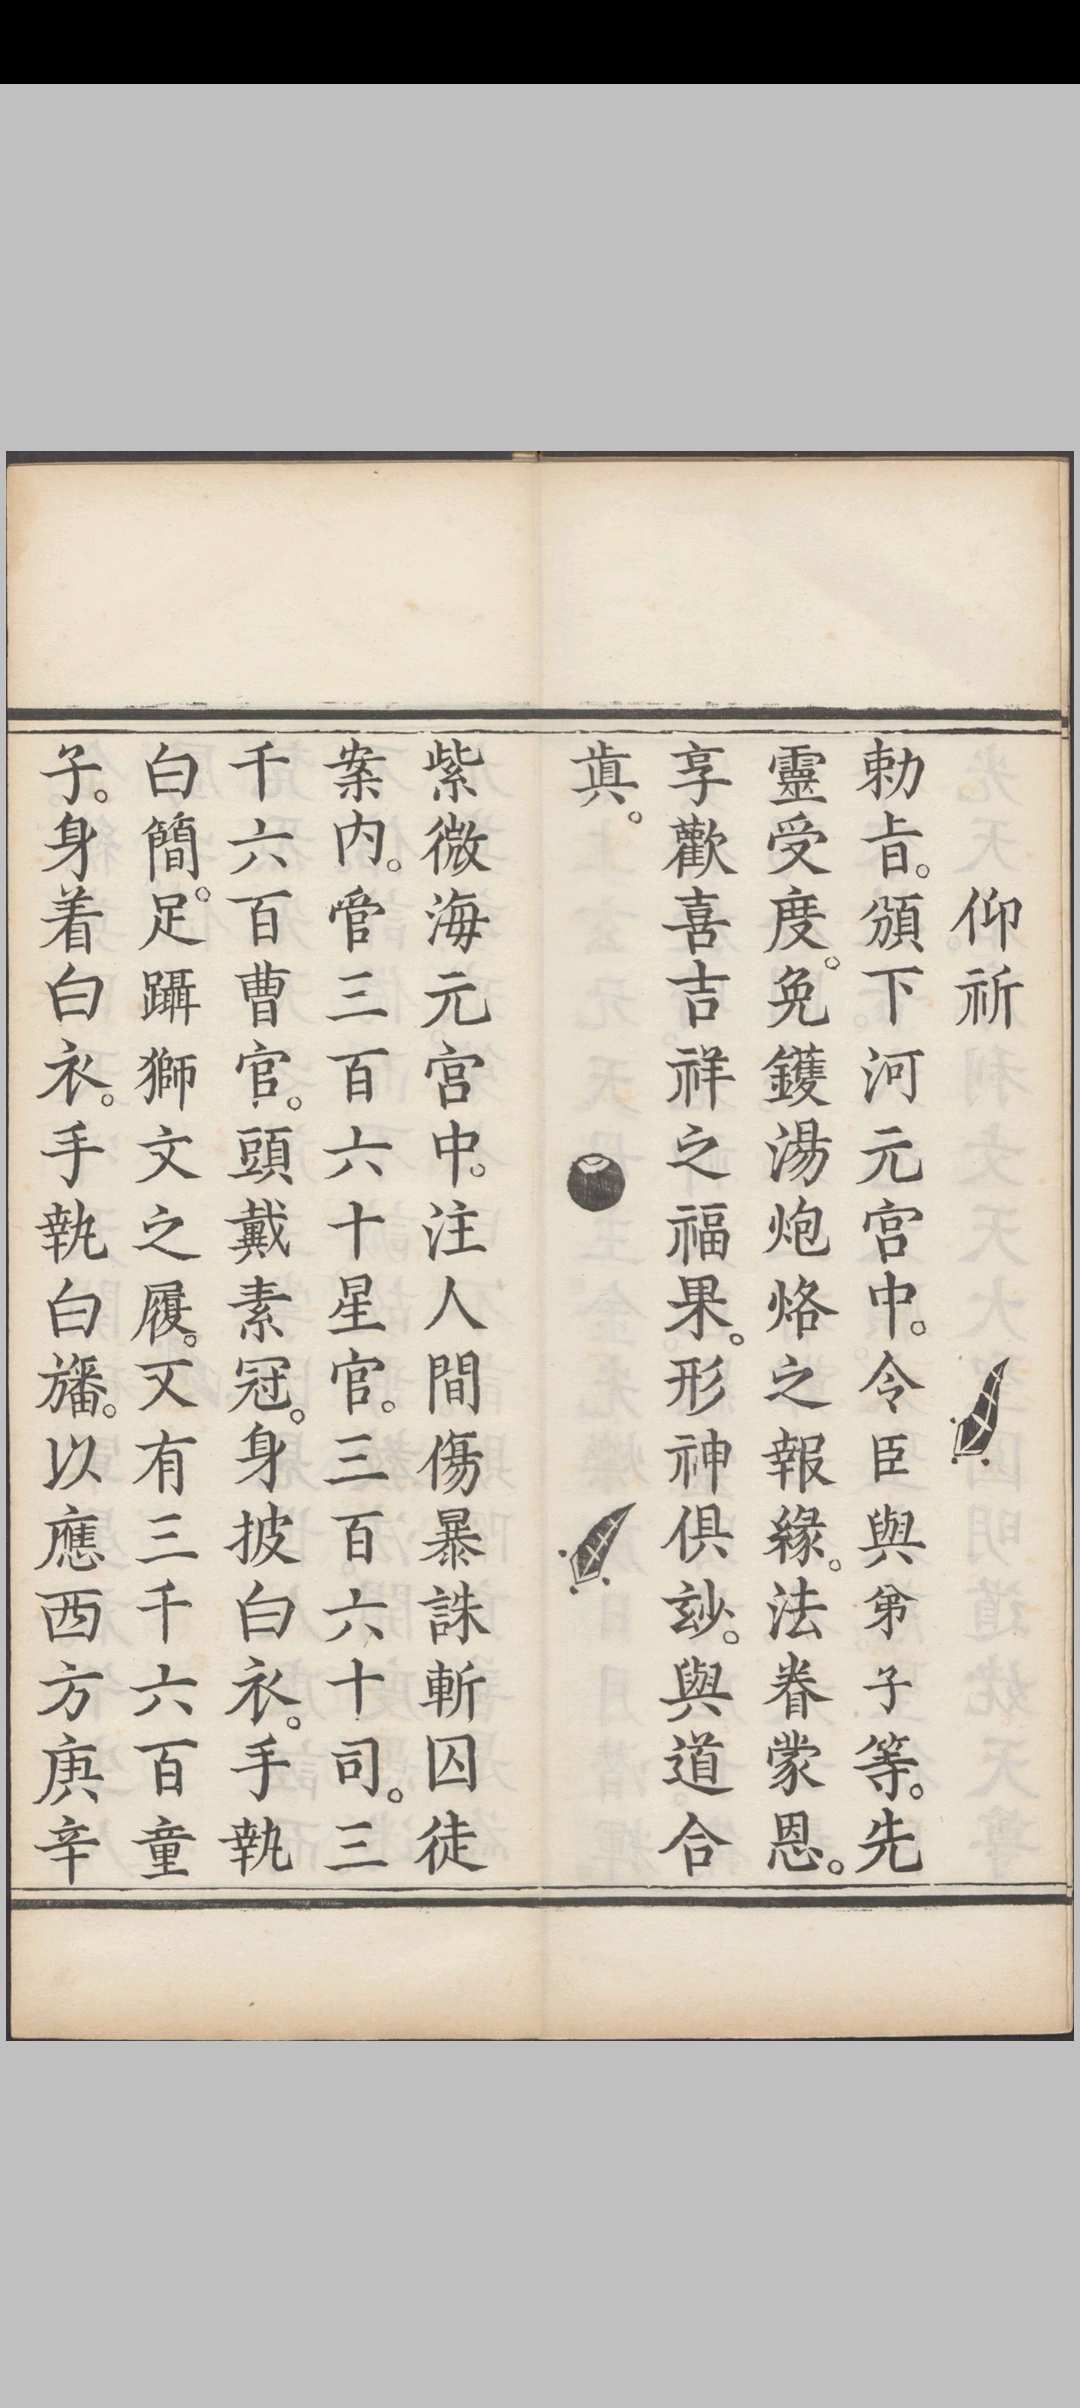 仰祈
勅旨。頒下河元宮中。令臣與弟子等。先
靈受度。免鑊湯炮烙之報緣。法眷蒙恩。
享歡喜吉祥之福果。形神俱玅。與道合
眞。
紫微海元宮中。注人間傷暴誅斬囚徒
案內。管三百六十星官。三百六十司。三
千六百曹官。頭戴素冠。身披白衣。手執
白簡。足躡獅文之履。又有三千六百童
子。身着白衣。手執白旛。以應西方庚辛